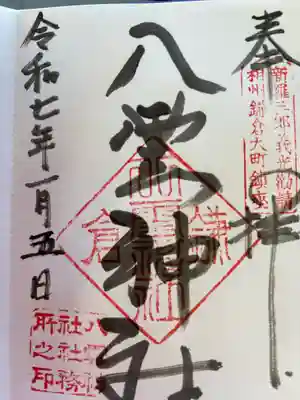 奉拝
新羅三郎義光勧請
相州鎌倉大町鎮座
八雲神社
鎌倉
令和七年一月五日
八雲神
社社務
所之印